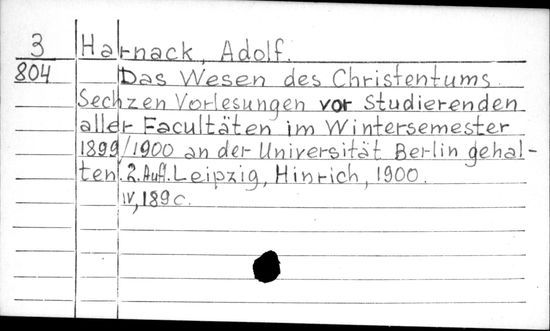 3 Harnack, Adolf.
804 Das Wesen des Christentums
Sechzen Vorlesungen vor Studierenden
aller Facultäten im Wintersemester
1899/1900 an der Universität Berlin gehal-
ten. 2. Aufl. Leipzig, Hinrich, 1900.
IV, 189 c.